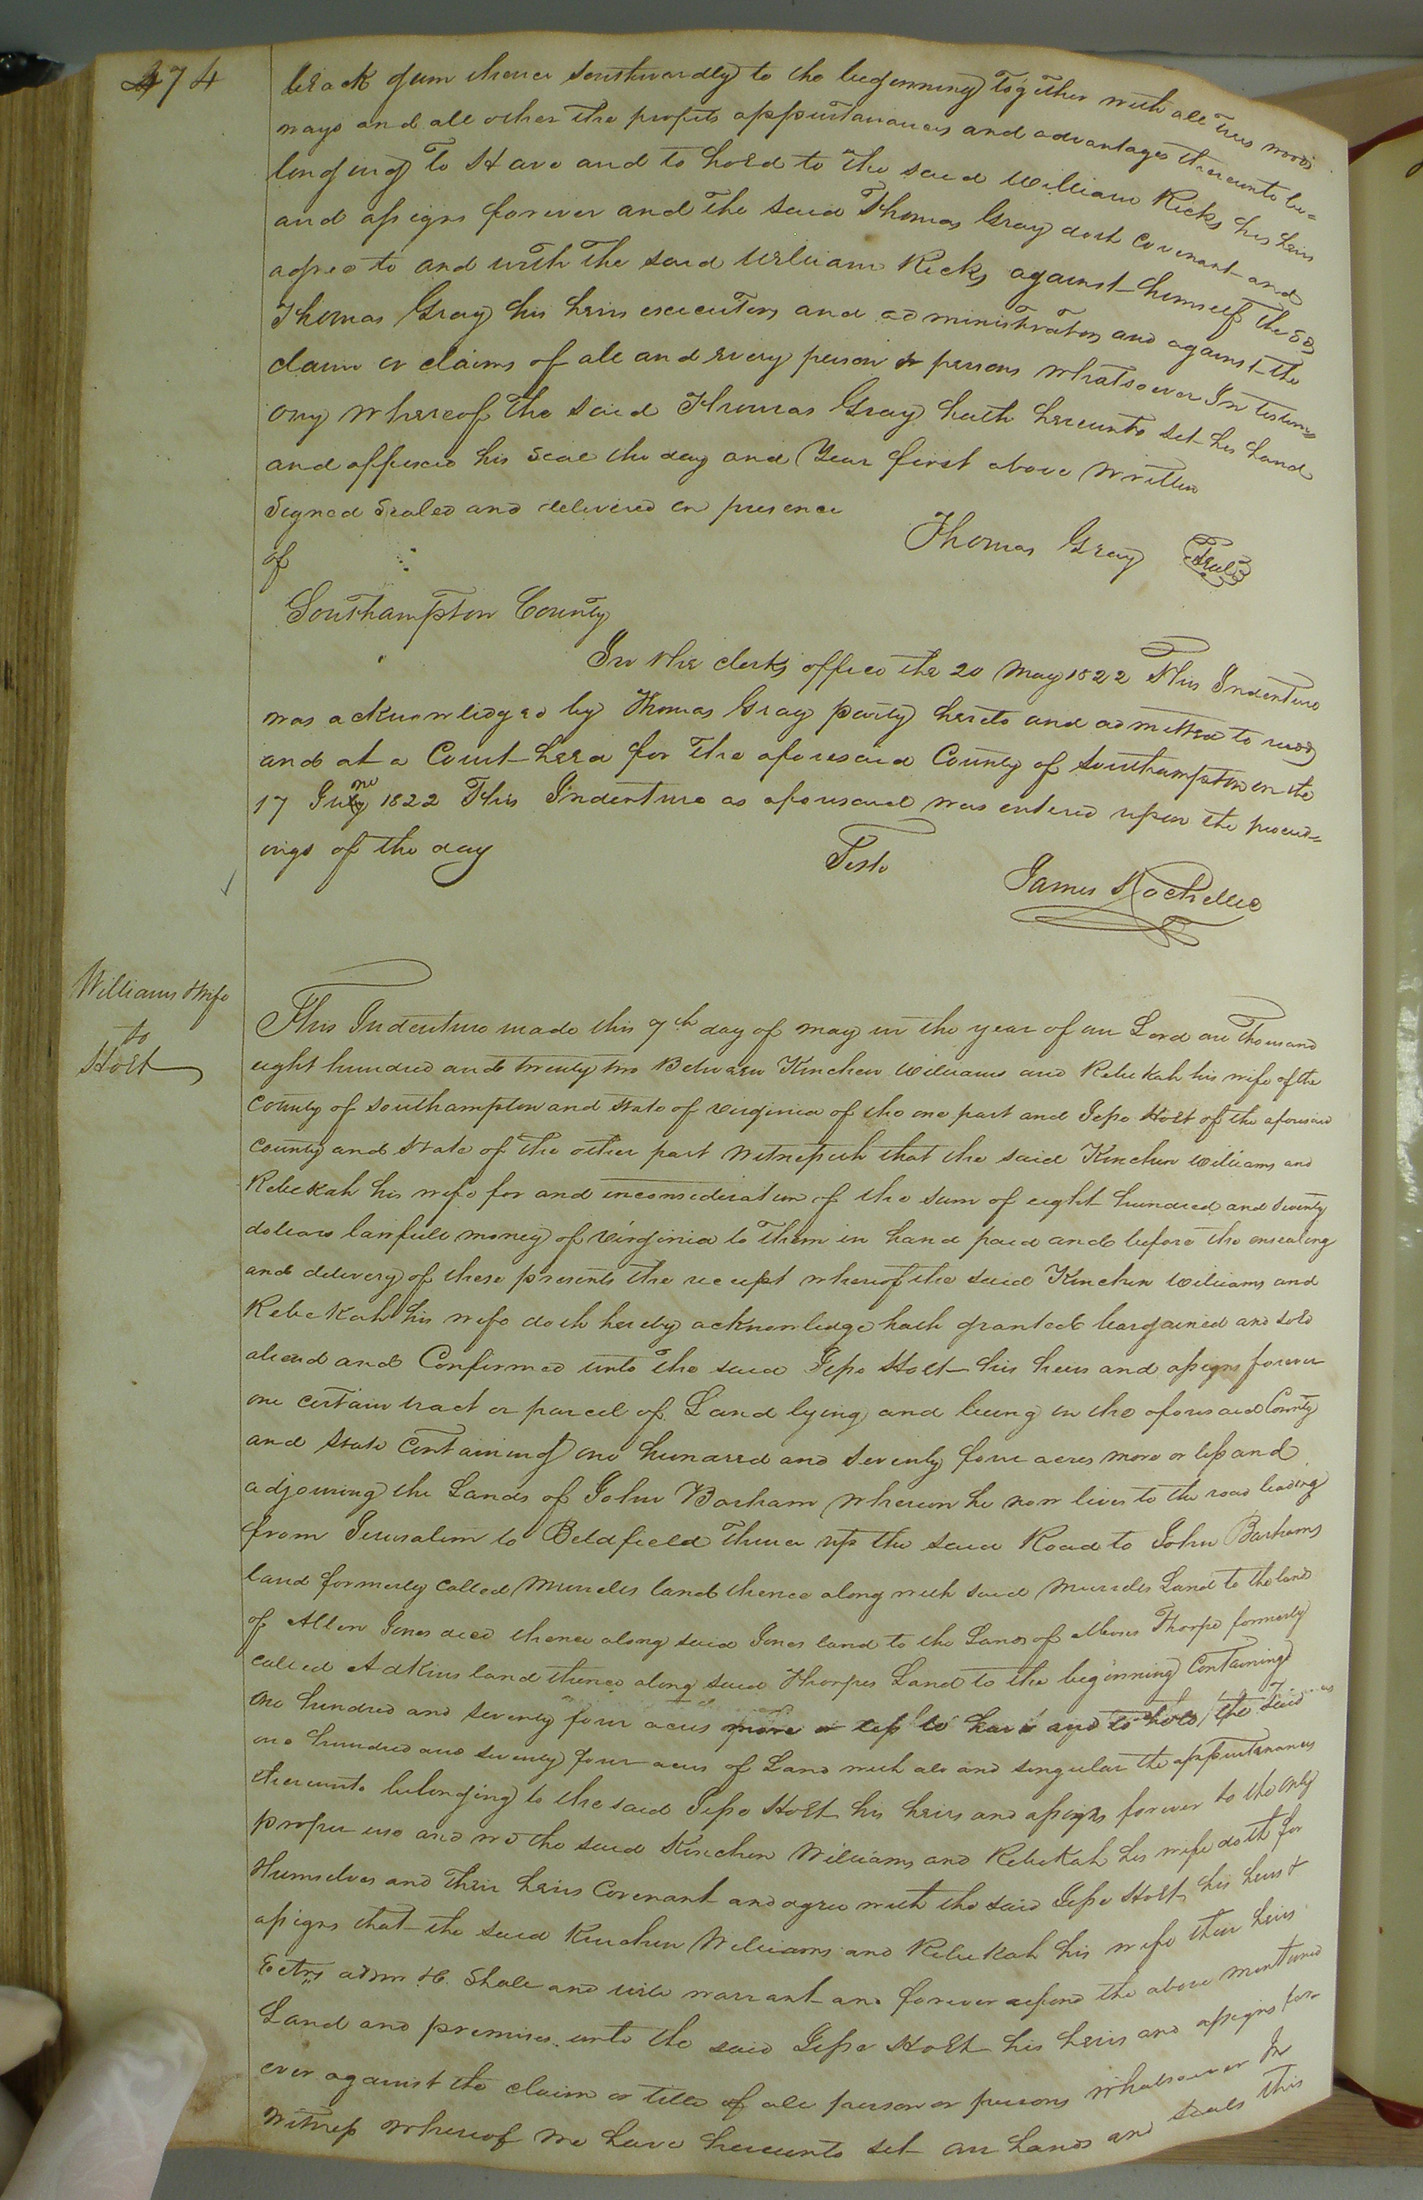 474
black gum thence southwardly to the beginning Together with all trees woods
ways and all other the profits appurtanances and advantages thereunto be=
longing To Have and to hold to the said William Ricks his heirs
and assigns forever and the said Thomas Gray doth covenant and
agree to and with the said William Ricks against himself the sd
Thomas Gray his heirs executors and administrators and against the
claim or claims of all and every person or persons whatsoever In testim=
ony whereof the said Thomas Gray hath hereunto set his hand
and affixed his seal the day and Year first above written
Signed Sealed and delivered in presence
of
Thomas Gray Seal
Southampton County
In the clerks office the 20 May 1822 This Indenture
was acknowledged by Thomas Gray party hereto and admitted to record
and at a Court held for the aforesaid County of Southampton on the
17 June 1822 This Indenture as aforesaid was entered upon the proceed=
ings of the day
Teste
James Rochelle
Williams & wife
to
Holt
This Indenture made this 7th day of may in the year of our Lord one Thousand
eight hundred and twenty two Between Kinchen Williams and Rebekah his wife of the
County of Southampton and state of virginia of the one part and Jesse Holt of the aforesaid
county and state of the other part Witnesseth that the said Kinchen Williams and
Rebekah his wife for and inconsideration of the sum of eight hundred and seventy
dollars lawfull money of virginia to them in hand paid and before the ensealing
and delivery of these presents the receipt whereof the said Kinchen Williams and
Rebekah his wife doth hereby acknowledge hath granted bargained and sold
aliend and Confirmed unto the said Jesse Holt his heirs and assigns forever
one certain tract or parcel of Land lying and being in the aforesaid County
and state Containing one hundred and seventy four acres more or less and
adjoining the Lands of John Barham whereon he now lives to the road leading
from Jerusalem to Beldfield thence up the said Road to John Barhams
land formerly called Murrels land thence along with said Murrels Land to the land
of Allen Jones decd thence along said Jones land to the Land of Moses Thorpe formerly
called Adkins land thence along said Thorpes Land to the beginning Containing
one hundred and seventy four acres more or less to have and to hold the said
one hundred and seventy four acres of Land with all and singular the appurtanances
thereunto belonging to the said Jesse Holt his heirs and assigns forever to the only
proper use and we the said Kinchen Williams and Rebekah his wife doth for
themselves and their heirs Covenant and agree with the said Jesse Holt his heirs &
assigns that the said Kinchen Williams and Rebekah his wife their heirs
Ectrs admr &c. Shall and will warrant and forever defend the above mentioned
Land and premises unto the said Jesse Holt his heirs and assigns for
ever against the claim or title of all person or persons whatsoever In
Witness whereof we have hereunto set our hands and seals this